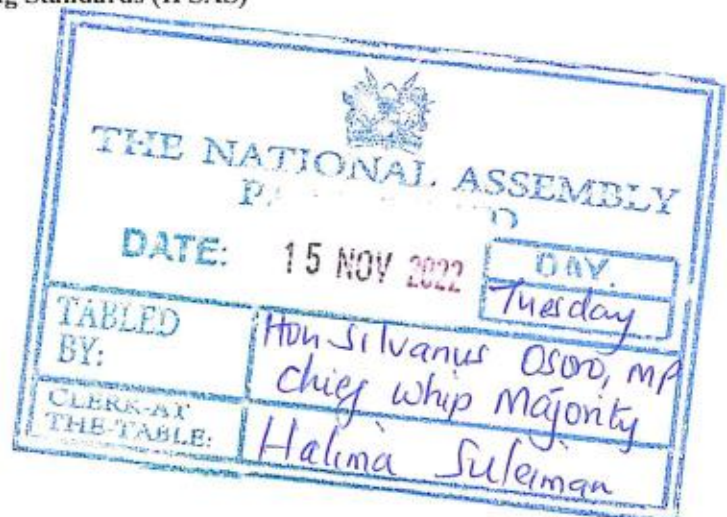 Standards (IPSAS)
THE NATIONAL ASSEMBLY
DATE: 15 NOV 2022 DAY.
Tuesday
TABLED BY: Hon Silvanus Osoro, MP
Chief Whip Majority
CLERK-AT THE-TABLE: Halima Suleiman